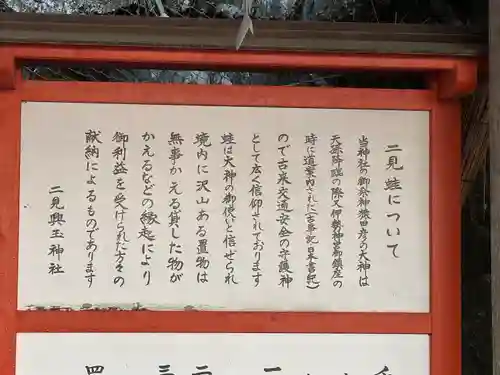 二見蛙について
当神社の御祭神猿田彦の大神は
天孫降臨の際又伊勢神宮御鎮座の
時に道案内された(古事記日本書紀)
ので古来交通安全の守護神
として広く信仰されております
蛙は大神の御使いと信ぜられ
境内に沢山ある置物は
無事かえる貸した物が
かえるなどの縁起により
御利益を受けられた方々の
献納によるものであります
二見興玉神社
一
二
三
四